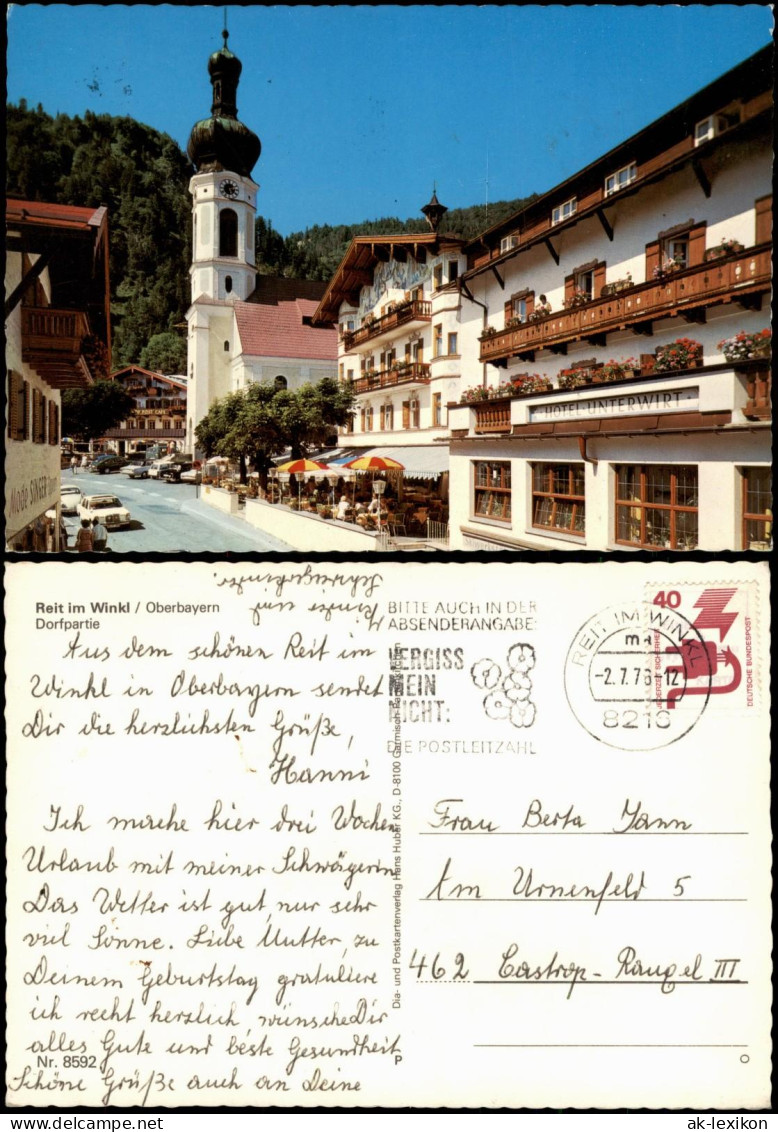 HOTEL-UNTERWIRT
Mode SINGER
Reit im Winkl / Oberbayern
Dorfpartie
Aus dem schönen Reit im
Winkl in Oberbayern sendet
Dir die herzlichsten Grüße,
Hanni
Ich mache hier drei Wochen
Urlaub mit meiner Schwägerin
Das Wetter ist gut, nur sehr
viel Sonne. Liebe Mutter, zu
Deinem Geburtstag gratuliere
ich recht herzlich, wünsche Dir
alles Gute und beste Gesundheit
Nr. 8592
P
Schöne Grüße auch an Deine
Dia- und Postkartenverlag Hans Huber KG., D-8100 Garmisch-Partenkirchen
BITTE AUCH IN DER
ABSENDERANGABE:
VERGISS
MEIN
NICHT:
DIE POSTLEITZAHL
REIT IM WINKL
-2.7.76-12
8216
40
DEUTSCHE BUNDESPOST
Frau Berta Jann
Am Urnenfeld 5
462 Castrop-Rauxel III
ak-lexikon
www.ak-ansichtskarten.de
ak-lexikon